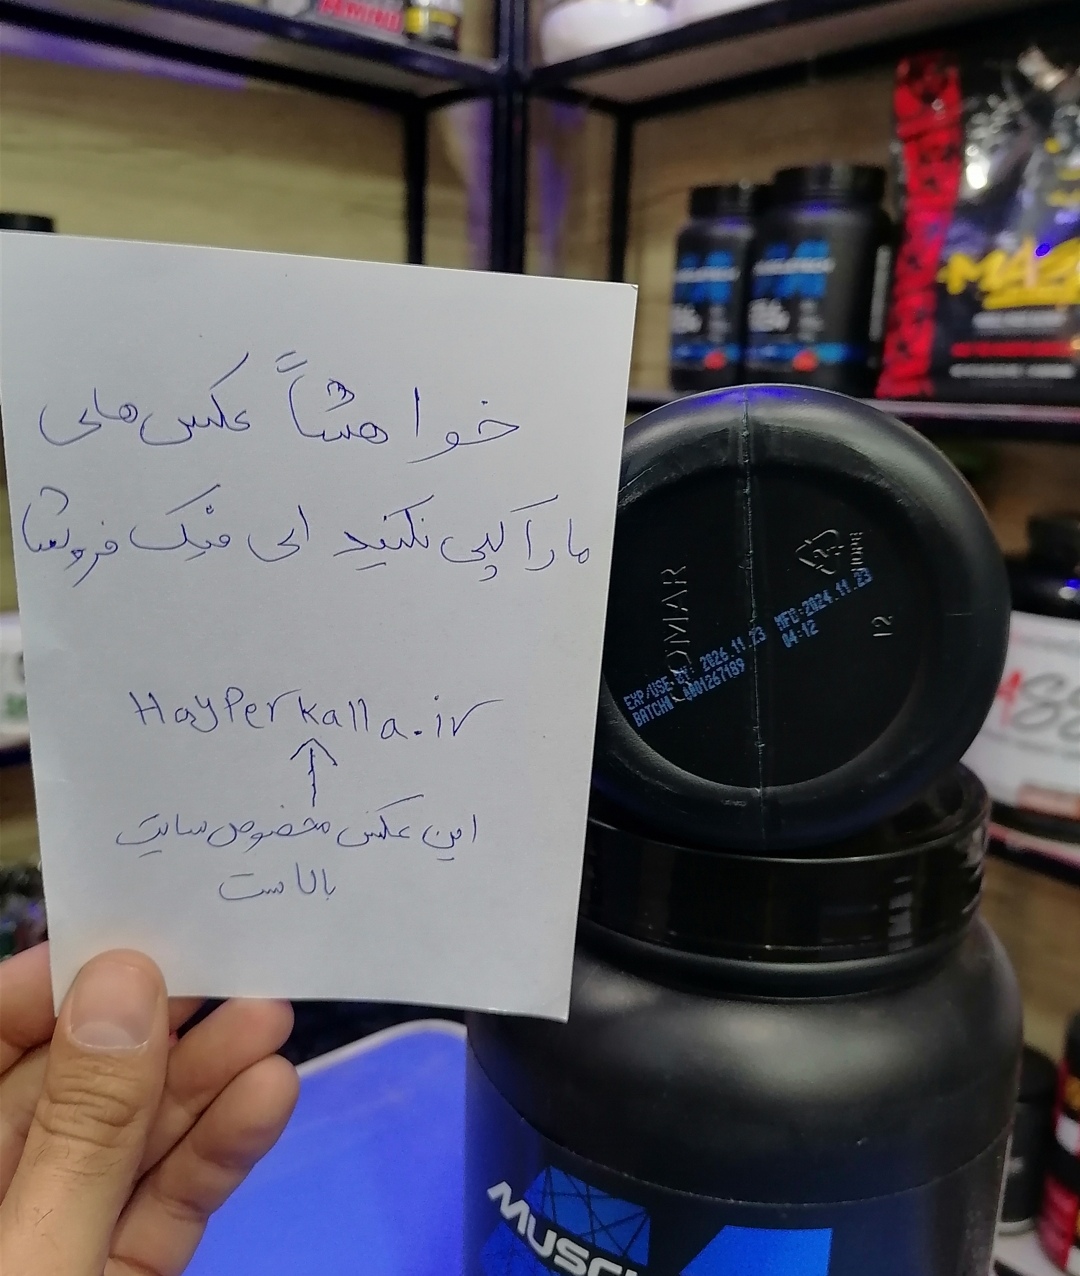 خواهشاً عکس های
مارا کپی نکنید ای فیک فروشا
HayPerkalla.ir
این عکس مخصوص سایت
بالاست
OMAR
2
HDPE
12
EXP/USE BY: 2026.11.23 MFD:2024.11.23
BATCH#: 0001267189 04:12
MUSCL
AMINO